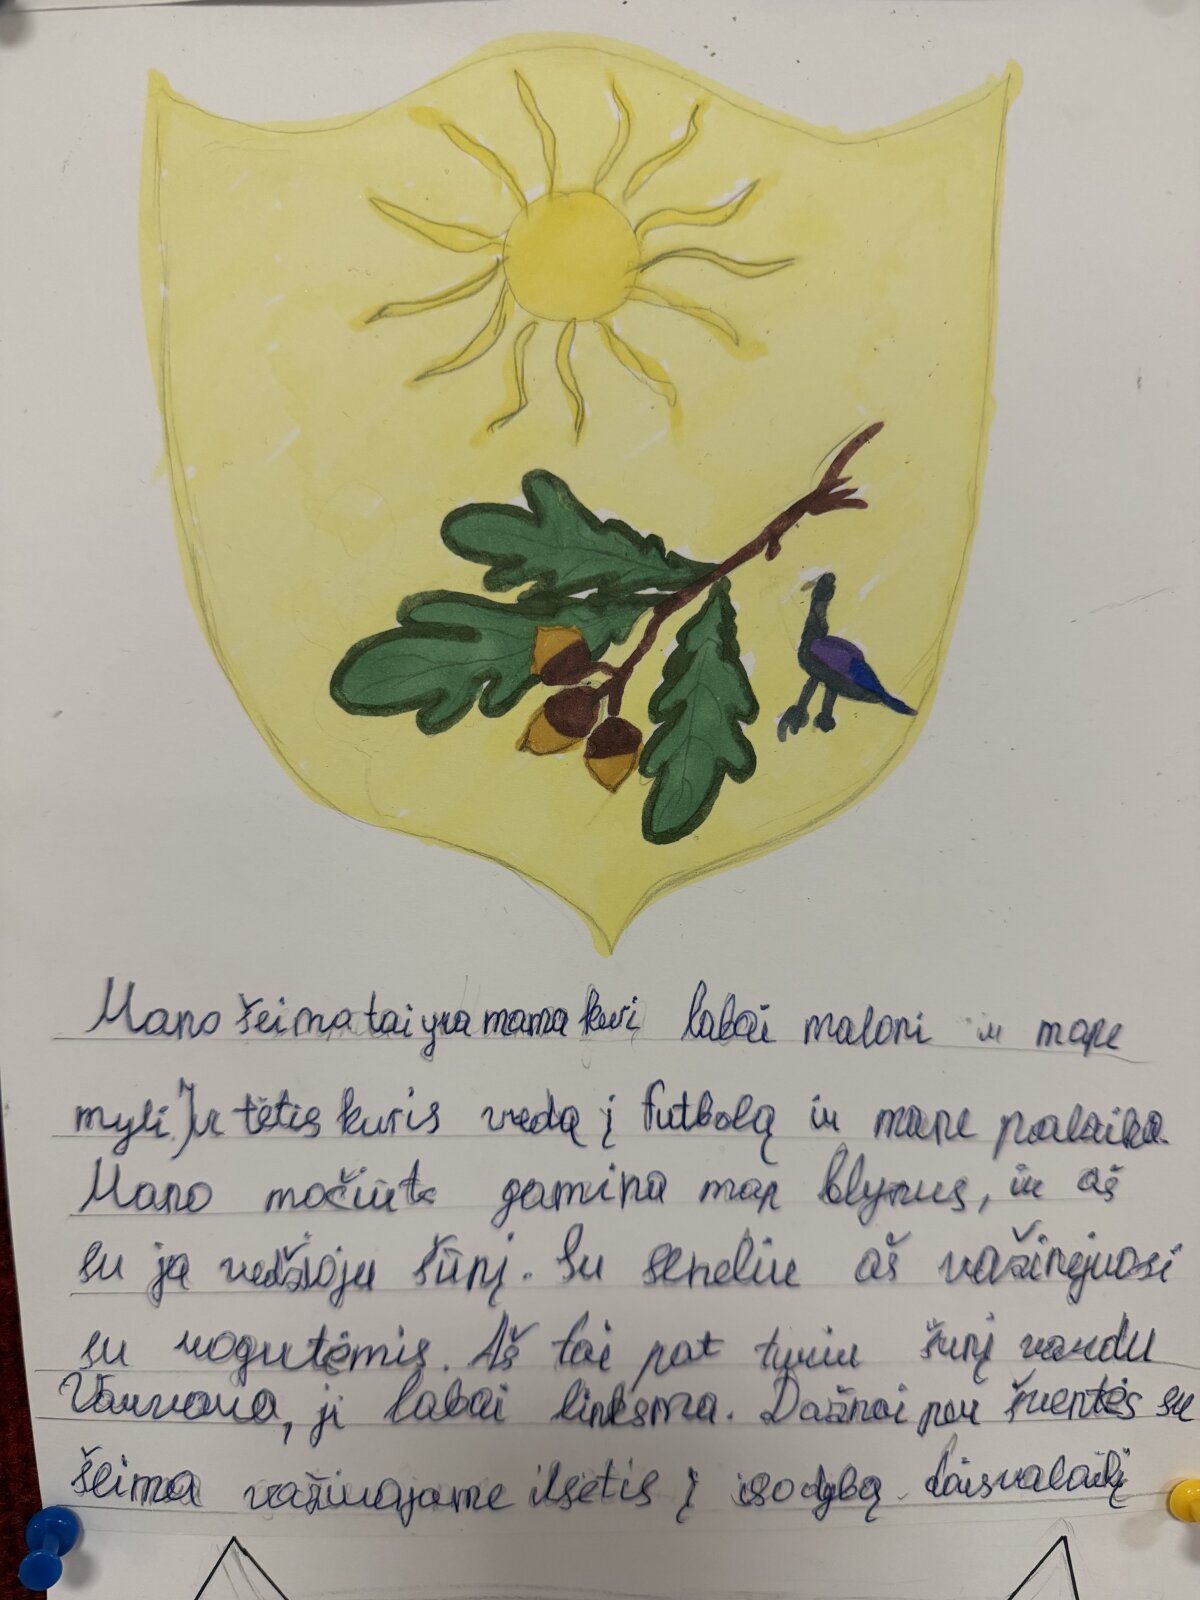 Mano šeima tai yra mama kuri labai maloni ir mane
myli. Ir tėtis kuris veda į futbolą ir mane palaiko.
Mano močiutė gamina man blynus, ir aš
su ja vedžioju šūnį. Su seneliu aš važinėjuosi
su rogutėmis. Aš tai pat turiu šunį vardu
Varvara, ji labai linksma. Dažnai per šventes su
šeima važiuojame ilsėtis į sodybą.